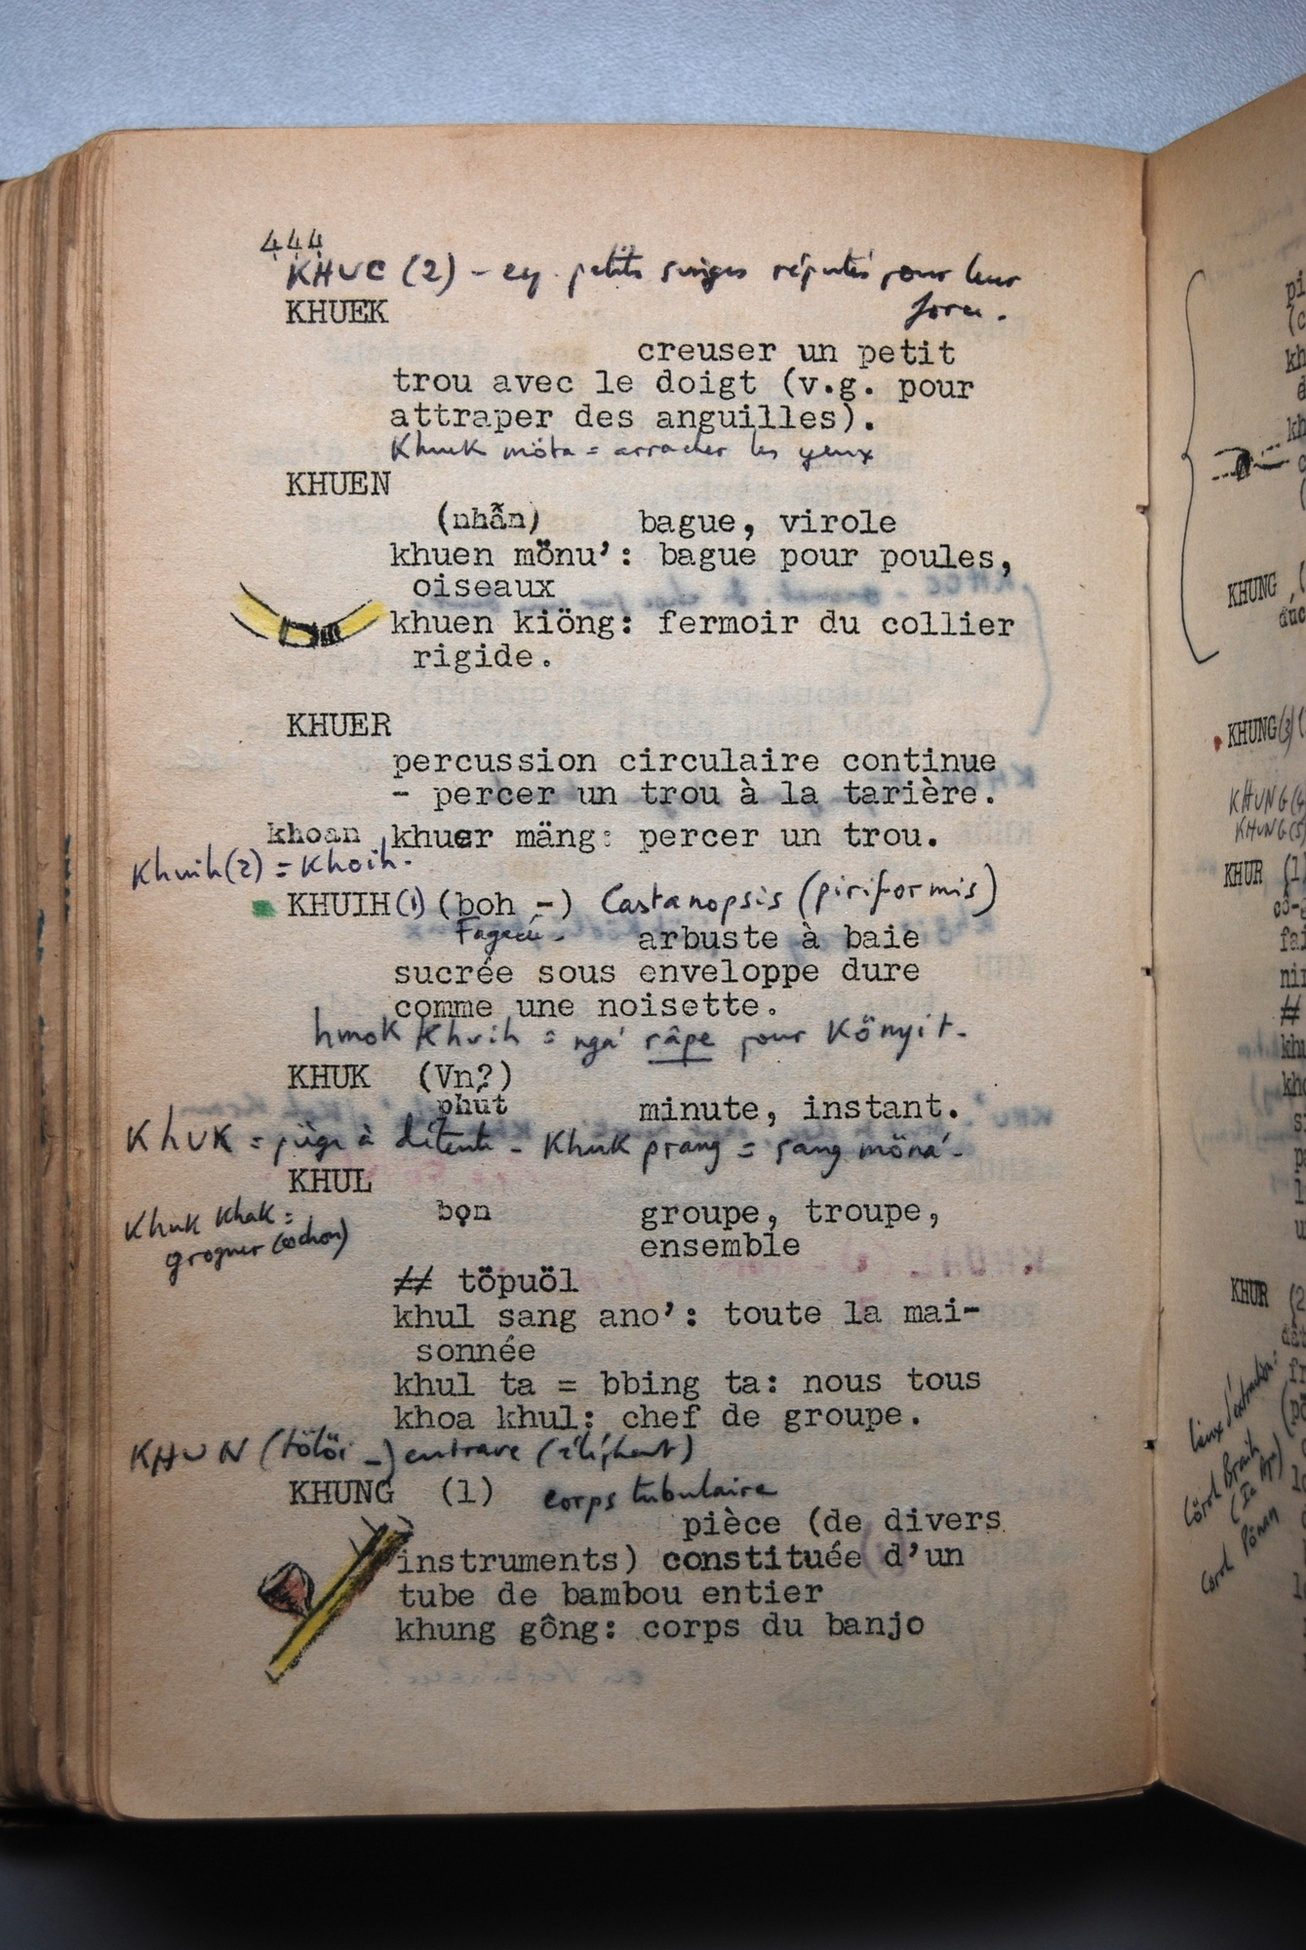 444
KHUC (2) - ey. petits singes réputés pour leur
force.
KHUEK
creuser un petit
trou avec le doigt (v.g. pour
attraper des anguilles).
Khuek möta = arracher les yeux
KHUEN
(nhẫn) bague, virole
khuen mönu': bague pour poules,
oiseaux
khuen kiöng: fermoir du collier
rigide.
KHUER
percussion circulaire continue
- percer un trou à la tarière.
khoan khuer mäng: percer un trou.
Khuih(2) = Khoih.
KHUIH(1) (boh -) Castanopsis (piriformis)
Fagacé. arbuste à baie
sucrée sous enveloppe dure
comme une noisette.
hmok Khuih = ngá râpe pour Könyit.
KHUK (Vn?)
phút minute, instant.
KhUK = piège à détente - Khuk prang = sang möná.
KHUL
Khuk Khak =
grogner (cochon)
bọn groupe, troupe,
ensemble
## töpuöl
khul sang ano': toute la mai-
sonnée
khul ta = bbing ta: nous tous
khoa khul: chef de groupe.
KHUN (tölöi -) entrave (éléphant)
KHUNG (1) corps tubulaire
pièce (de divers
instruments) constituée d'un
tube de bambou entier
khung gông: corps du banjo
KHUNG
KHUNG(3)
KHUNG(4
KHUNG(5)
KHUR (1)
KHUR (2